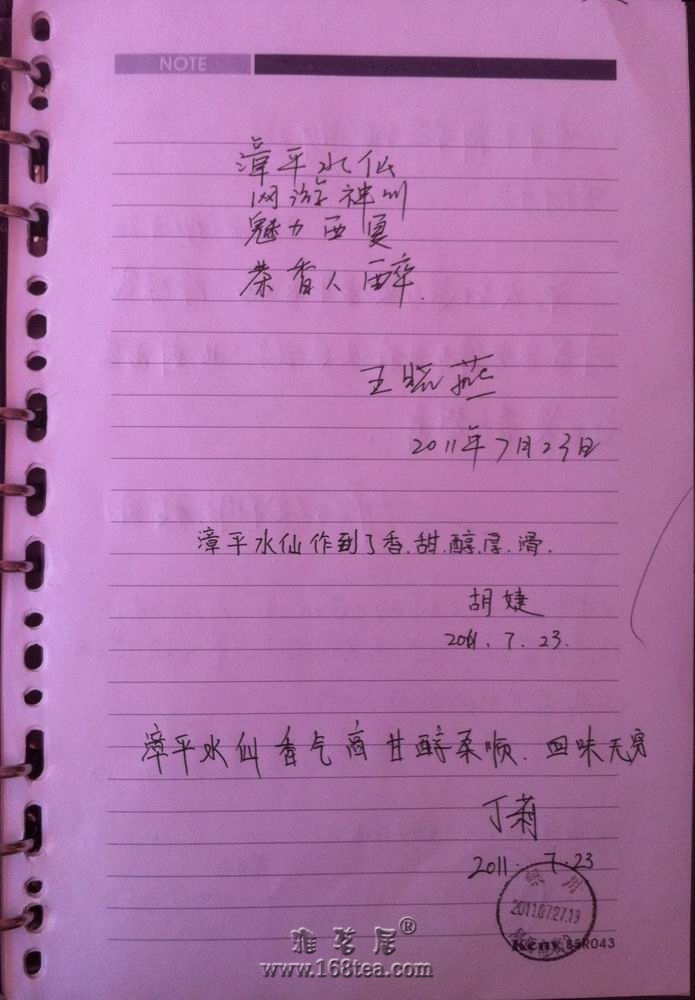 NOTE
漳平水仙
网游神州
魅力西夏
茶香人醉.
王晓燕
2011年7月23日
漳平水仙作到了香.甜.醇.厚.滑.
胡婕
2011.7.23.
漳平水仙香气高甘醇柔顺.回味无穷
丁莉
2011.7.23
银川
2011.07.27.19
雅茗居®
www.168tea.com
B5R043